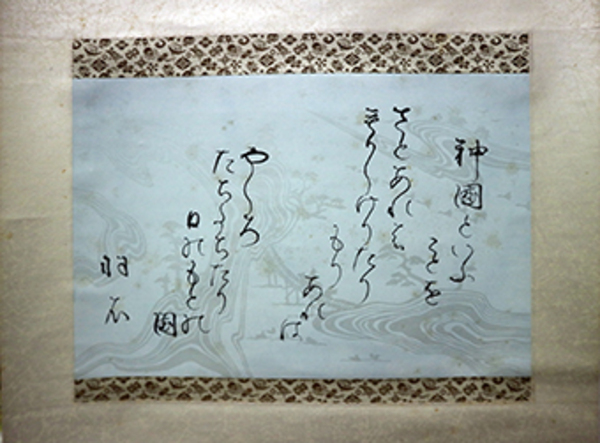 神國といふ
ことを
さとあれは
しけりたり
もり
あれば
やしろ
たちたり
日のもとの
國
羽石